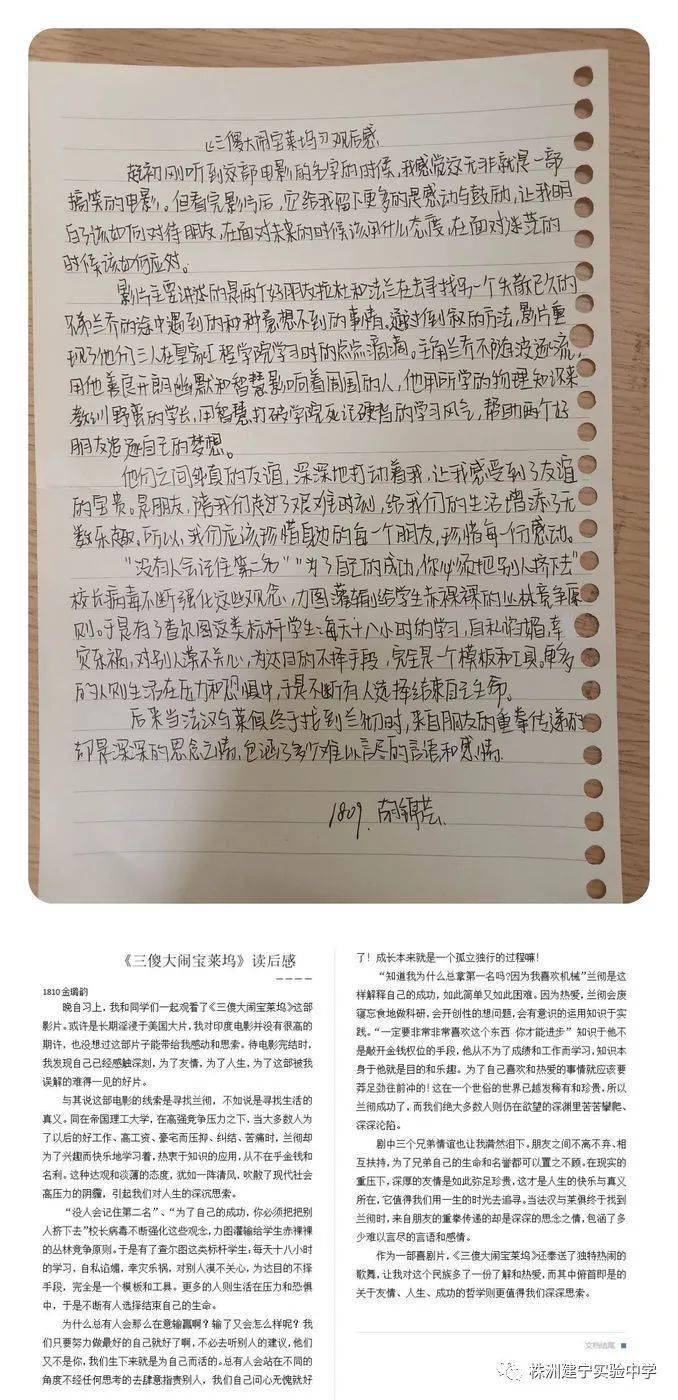 《三傻大闹宝莱坞》观后感
起初刚听到这部电影的名字的时候,我感觉这无非就是一部
搞笑的电影。但看完影片后,它给我留下更多的是感动与鼓励,让我明
白了该如何对待朋友,在面对未来的时候该用什么态度,在面对迷茫的
时候该如何应对。
影片主要讲述的是两个好朋友拉杜和法兰在去寻找另一个失散已久的
兄弟兰乔的途中遇到的种种意想不到的事情。通过倒叙的方法,影片重
现了他们三人在皇家工程学院学习时的点点滴滴。主角兰乔不随波逐流,
用他善良开朗幽默和智慧影响着周围的人,他用所学的物理知识来
教训野蛮的学长,用智慧打破学院死记硬背的学习风气,帮助两个好
朋友追逐自己的梦想。
他们之间纯真的友谊,深深地打动着我,让我感受到了友谊
的宝贵。是朋友,陪我们走过了艰难时刻,给我们的生活增添了无
数乐趣。所以,我们应该珍惜身边的每一个朋友,珍惜每一份感动。
“没有人会记住第二名”“为了自己的成功,你必须把别人挤下去”
校长病毒不断强化这些观念,力图灌输给学生赤裸裸的丛林竞争原
则。于是有了查尔图这类标杆学生:每天十八小时的学习,自私谄媚,幸
灾乐祸,对别人漠不关心,为达目的不择手段,完全是一个模板和工具。更多
的人则生活在压力和恐惧中,于是不断有人选择结束自己生命。
后来当法汉与莱俱终于找到兰彻时,来自朋友的重拳传递的
却是深深的思念之情,包涵了多少难以言尽的言语和感情。
1809.
《三傻大闹宝莱坞》读后感
1810 金璐韵
晚自习上,我和同学们一起观看了《三傻大闹宝莱坞》这部
影片。或许是长期淫浸于美国大片,我对印度电影并没有很高的
期许,也没想过这部片子能带给我感动和思索。待电影完结时,
我发现自己已经感触深刻,为了友情,为了人生,为了这部被我
误解的难得一见的好片。
与其说这部电影的线索是寻找兰彻,不如说是寻找生活的
真义。同在帝国理工大学,在高强竞争压力之下,当大多数人为
了以后的好工作、高工资、豪宅而压抑、纠结、苦痛时,兰彻却
为了兴趣而快乐地学习着,热衷于知识的应用,从不在乎金钱和
名利。这种达观和淡薄的态度,犹如一阵清风,吹散了现代社会
高压力的阴霾,引起我们对人生的深沉思索。
“没人会记住第二名”、“为了自己的成功,你必须把把别
人挤下去”校长病毒不断强化这些观念,力图灌输给学生赤裸裸
的丛林竞争原则。于是有了查尔图这类标杆学生:每天十八小时
的学习,自私谄媚,幸灾乐祸,对别人漠不关心,为达目的不择
手段,完全是一个模板和工具。更多的人则生活在压力和恐惧
中,于是不断有人选择结束自己的生命。
为什么总有人会那么在意输赢啊?输了又会怎么样呢?我
们只要努力做最好的自己就好了啊,不必去听别人的建议,他们
又不是你,我们生下来就是为自己而活的。总有人会站在不同的
角度不经任何思考的去肆意指责别人,我们自己问心无愧就好
了!成长本来就是一个孤立独行的过程嘛!
“知道我为什么总拿第一名吗?因为我喜欢机械”兰彻是这
样解释自己的成功,如此简单又如此困难。因为热爱,兰彻会废
寝忘食地做科研,会开创性的想问题,会有意识的运用知识于实
践。“一定要非常非常喜欢这个东西 你才能进步”知识于他不
是敲开金钱权位的手段,他从不为了成绩和工作而学习,知识本
身于他就是目的和乐趣。为了自己喜欢和热爱的事情就应该要
莽足劲往前冲的!这在一个世俗的世界已越发稀有和珍贵,所以
兰彻成功了,而我们绝大多数人则仍在欲望的深渊里苦苦攀爬、
深深沦陷。
剧中三个兄弟情谊也让我潸然泪下。朋友之间不离不弃、相
互扶持,为了兄弟自己的生命和名誉都可以置之不顾。在现实的
重压下,深厚的友情是如此弥足珍贵,这才是人生的快乐与真义
所在,它值得我们用一生的时光去追寻。当法汉与莱俱终于找到
兰彻时,来自朋友的重拳传递的却是深深的思念之情,包涵了多
少难以言尽的言语和感情。
作为一部喜剧片,《三傻大闹宝莱坞》还奉送了独特热闹的
歌舞,让我对这个民族多了一份了解和热爱,而其中俯首即是的
关于友情、人生、成功的哲学则更值得我们深深思索。
文档结尾
株洲建宁实验中学